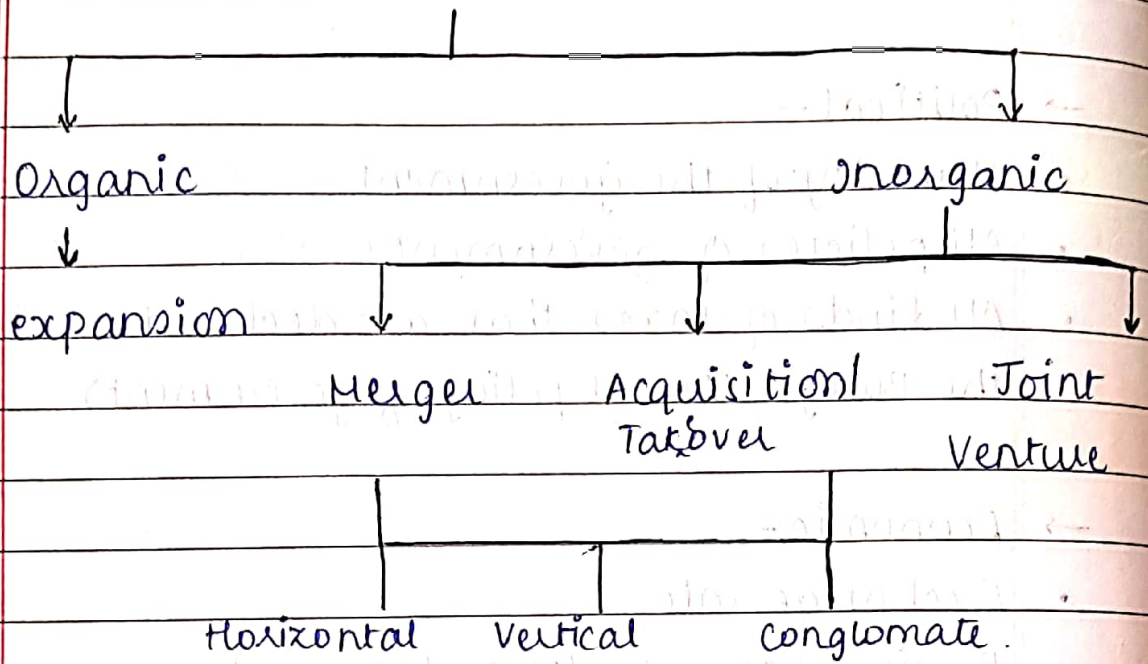 Organic Inorganic
expansion
Merger Acquisition/ Joint
Takeover Venture
Horizontal Vertical Conglomate.